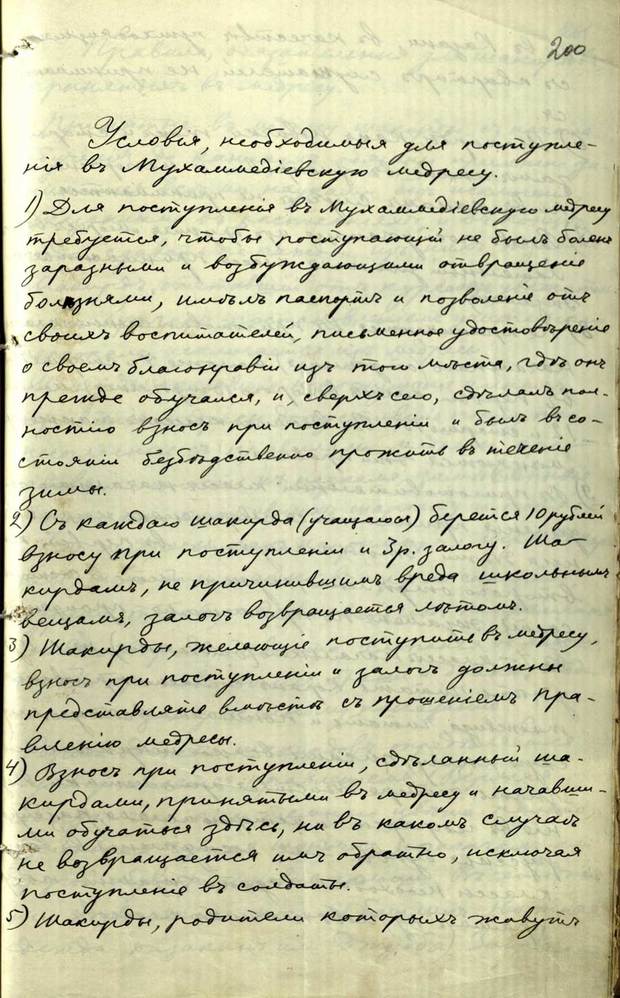 200
Условія, необходимыя для поступле-
нія въ Мухаммедіевскую медресу.
1) Для поступленія въ Мухаммедіевскую медресу
требуется, чтобы поступающій не былъ боленъ
заразными и возбуждающими отвращеніе
болѣзнями, имѣлъ паспортъ и позволеніе отъ
своихъ воспитателей, письменное удостовѣреніе
о своемъ благонравіи изъ того мѣста, гдѣ онъ
прежде обучался, и, сверхъ сего, сдѣлалъ пол-
ностію взносъ при поступленіи и былъ въ со-
стояніи безбѣдственно прожить въ теченіе
зимы.
2) Съ каждаго шакирда (учащагося) берется 10 рублей
взносу при поступленіи и 3 р. залогу. Ша-
кирдамъ, не причинившимъ вреда школьнымъ
вещамъ, залогъ возвращается лѣтомъ.
3) Шакирды, желающіе поступить въ медресу,
взносъ при поступленіи и залогъ должны
представлять вмѣстѣ съ прошеніемъ пра-
вленію медресы.
4) Взносъ при поступленіи, сдѣланный ша-
кирдами, принятыми въ медресу и начавши-
ми обучаться здѣсь, ни въ какомъ случаѣ
не возвращается имъ обратно, исключая
поступленіе въ солдаты.
5) Шакирды, родители которыхъ живутъ